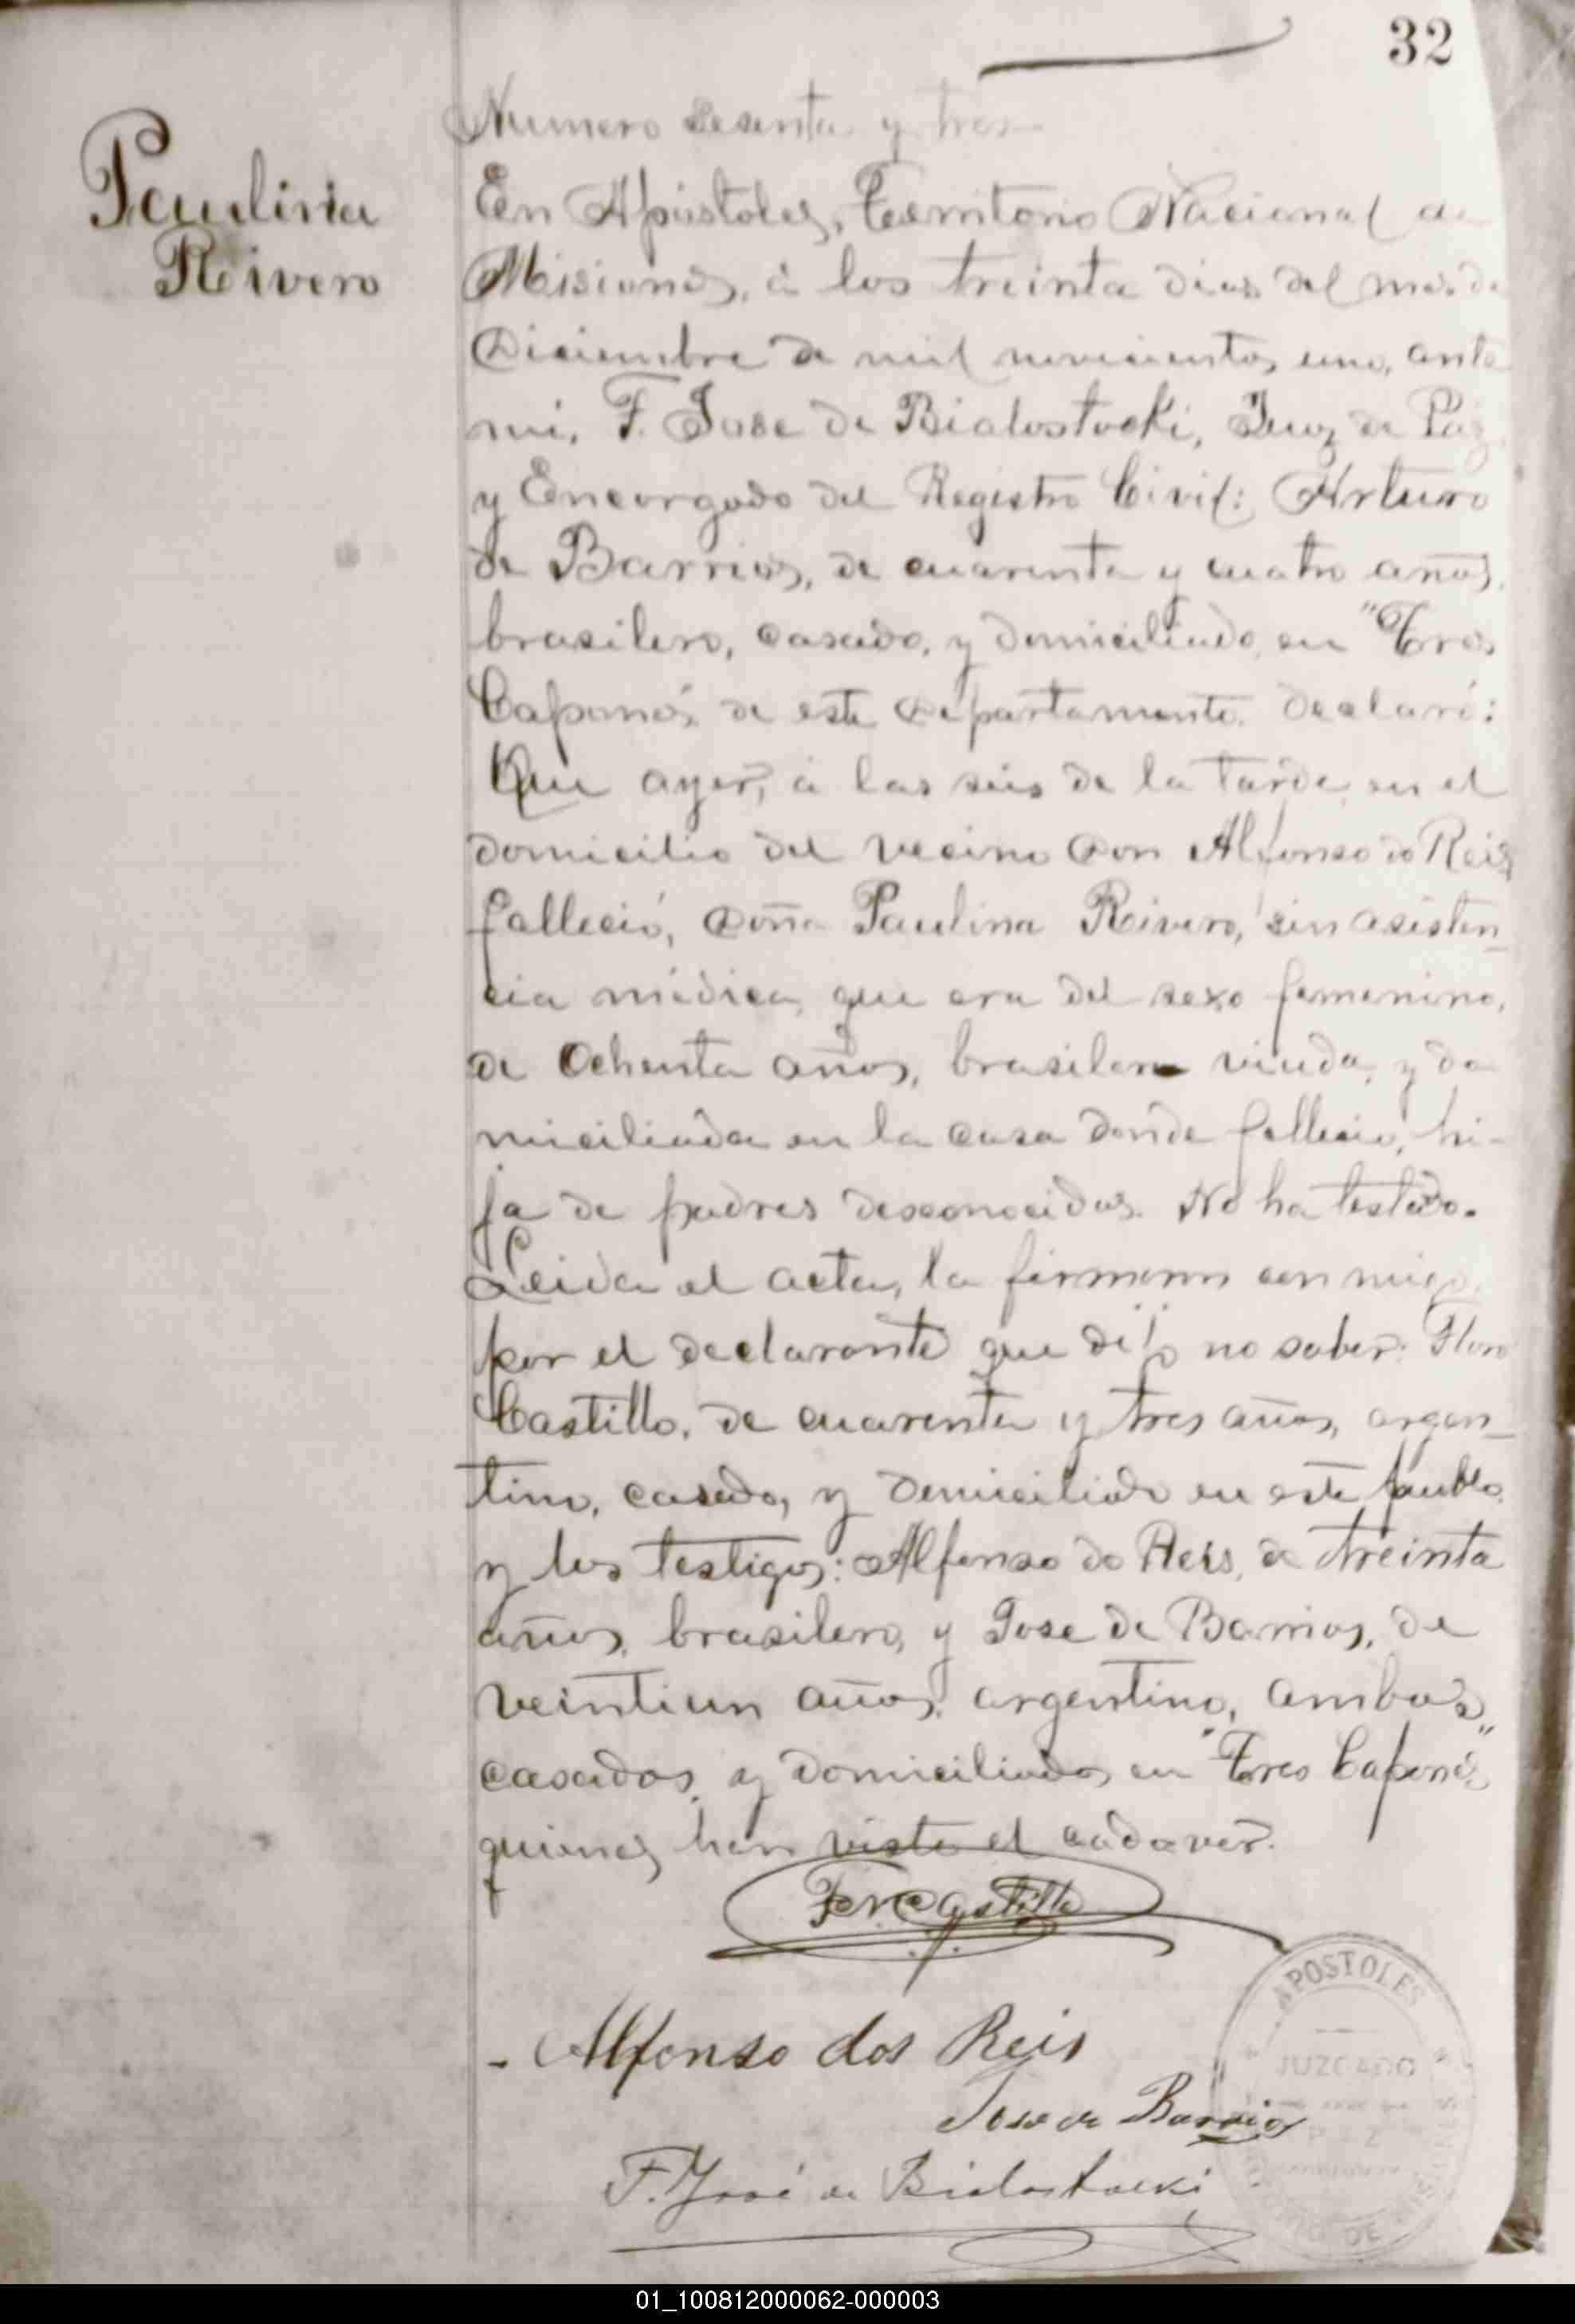 32
Paulina
Reivero
Numero sesenta y tres
En Apóstoles, Territorio Nacional de
Misiones, á los treinta dias del mes de
Diciembre de mil novecientos uno, ante
mi, F. Jose de Bialostocki, Juez de Paz
y Encargado del Registro Civil: Arturo
de Barrios, de cuarenta y cuatro años,
brasilero, casado, y domiciliado en "Tres
Capones de este departamento. declaró:
Que ayer, á las seis de la tarde, en el
domicilio del vecino Don Alfonso do Reis
falleció, Doña Paulina Reivero, sin asisten-
cia médica, que era del sexo femenino,
de Ochenta años, brasilera viuda, y do
miciliada en la casa donde falleció, hi-
ja de padres desconocidos. No ha testado.
Leida el acta, la firmaron conmigo,
por el declarante que dijo no saber: Floro
Castillo, de cuarenta y tres años, argen-
tino, casado, y domiciliado en este pueblo
y los testigos: Alfonso do Reis, de treinta
años, brasilero, y Jose de Barrios, de
veintiun años, argentino, ambos
casados, y domiciliados en "Tres Capones"
quienes han visto el cadaver.
Castillo
- Alfonso dos Reis
Jose de Barrios
F. José de Bialostocki
APOSTOLES
JUZGADO
01_100812000062-000003